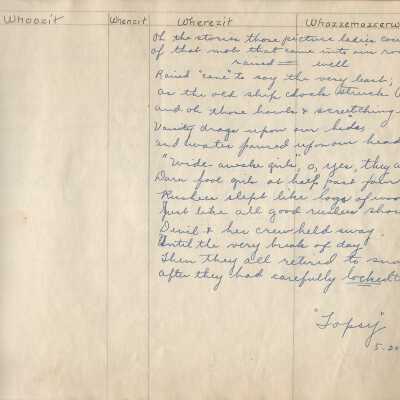 Whoozit Whenzit Wherezit Whazzemazzerw
Oh the stories those picture ladies cou
of that mob that came into our ro
raised well
Raised "cane" to say the very least,
as the old ship clock struck
and oh those howls & screetching
Vanity drags upon our hides
and water poured upon our head
"Wide awake girls", o, yes, they a
Darn fool girls at half past four
Rushees slept like logs of woo
Just like all good rushees shou
Devil & her crew held sway.
Until the very break of day
Then they all retired to
after they had carefully locked
"Topsy"
5-20